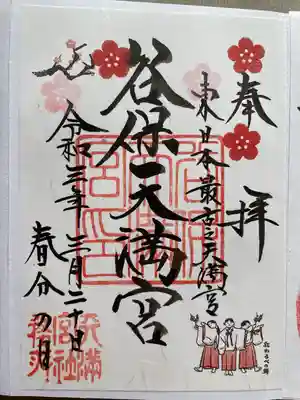 奉拝
東日本最古之天満宮
谷保天満宮
令和三年三月二十日
春分の日